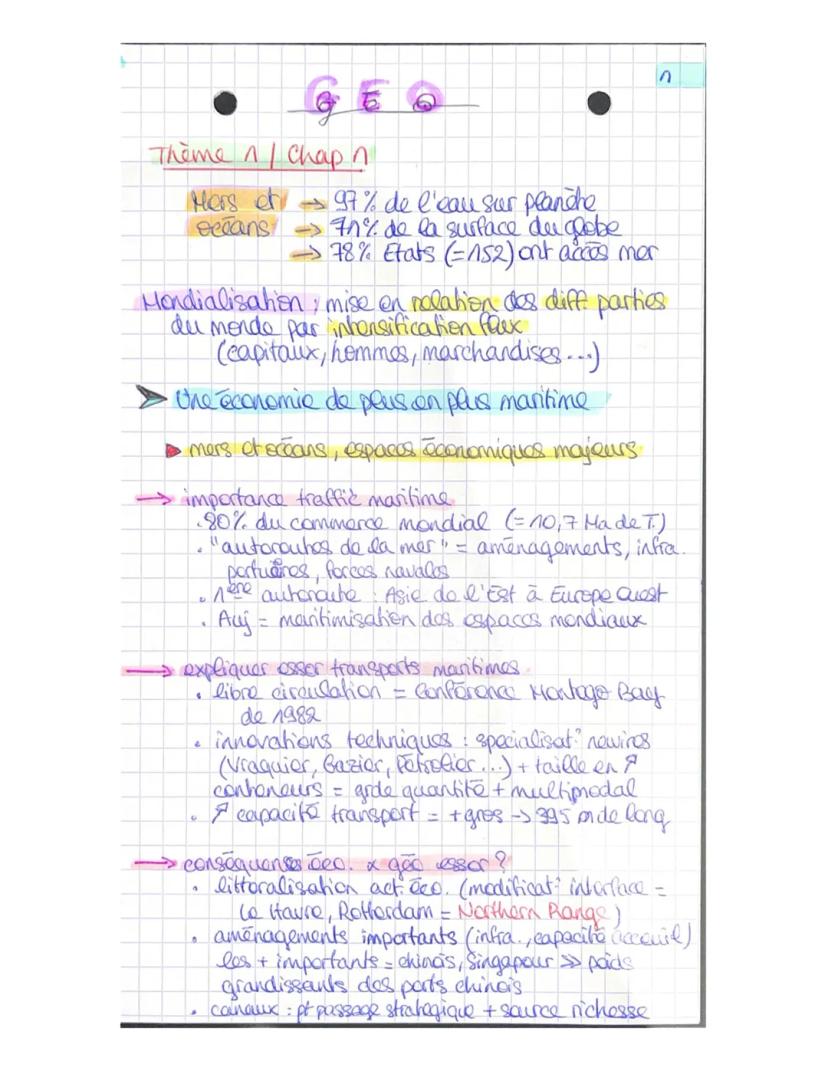 1
GEO
Thème 1 / Chap 1
Mers et → 97% de l'eau sur planète
océans → 71% de la surface du globe
→ 78% Etats (=152) ont accès mer
Mondialisation : mise en relation des diff parties
du monde par intensification flux
(capitaux, hommes, marchandises...)
➤ Une économie de plus en plus maritime
▶ mers et océans, espaces économiques majeurs
→ importance traffic maritime
. 80% du commerce mondial (= 10,7 Ma de T.)
. "autoroutes de la mer" = aménagements, infra.
portuaires, forces navales
. 1ère autoroute : Asie de l'Est à Europe Ouest
. Auj = maritimisation des espaces mondiaux
→ expliquer essor transports maritimes.
. libre circulation = Conférence Montego Bay
de 1982
. innovations techniques : spécialisat° navires
(Vraquier, Gazier, Pétrolier...) + taille en ↗
conteneurs = grde quantité + multimodal
. ↗ capacité transport = + gros -> 395 m de long
→ conséquences éco. & géo essor ?
. littoralisation act éco. (modificat° interface =
Le Havre, Rotterdam = Northern Range)
. aménagements importants (infra., capacité acceuil)
les + importants = chinois, Singapour >> poids
grandissants des ports chinois
. canaux : pt passage stratégique + source richesse